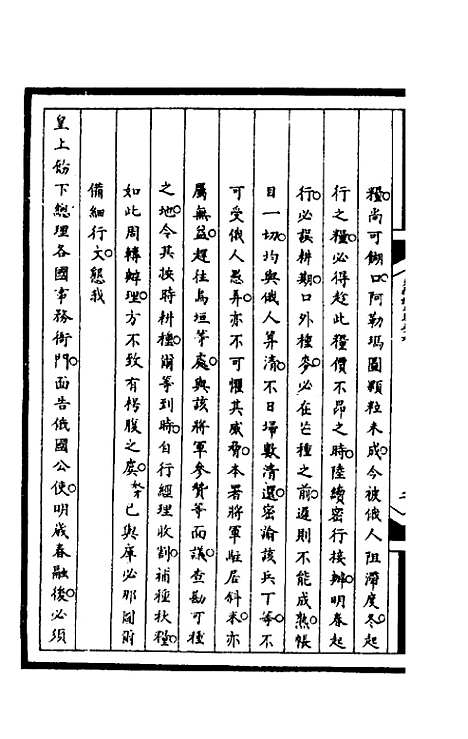 糧尚可餬口阿勒瑪圖顆粒未成今被俄人阻滯度冬起
行之糧必得趁此糧價不昂之時陸續密行接辦明春起
行必誤耕期口外種麥必在芒種之前遲則不能成熟帳
目一切均與俄人算清不日掃數清還密諭該兵丁等不
可受俄人愚弄亦不可懼其威脅本署將軍駐居斜米亦
屬無益趕往烏垣等處與該將軍參贊等面議查勘可種
之地令其挨時耕種爾等到時自行經理收割補種秋糧
如此周轉辦理方不致有枵腹之虞奴才已與庫必那圖爾
備細行文懇我
皇上飭下總理各國事務衙門面告俄國公使明歲春融後必須